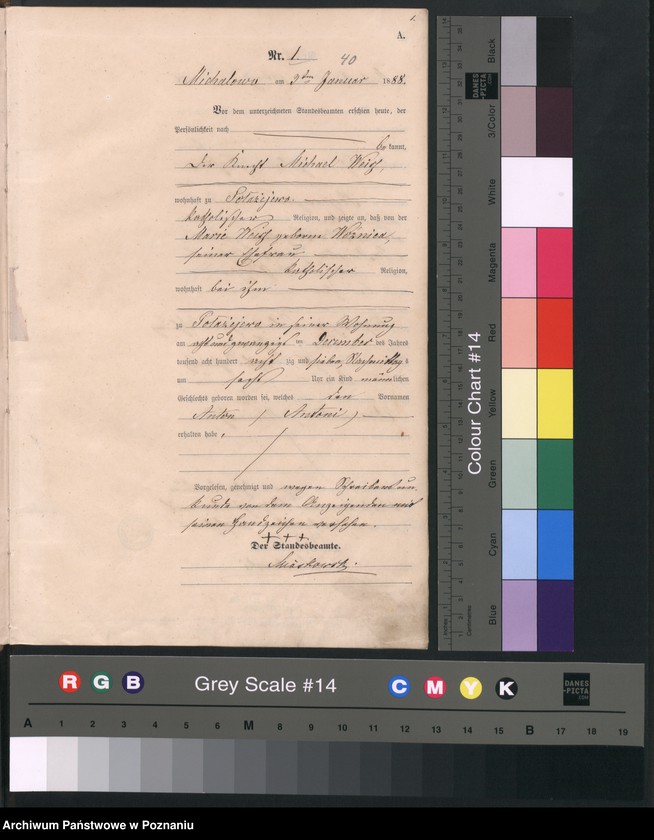 1.
A.
Nr. 1
40
Michalowo am 3ten Januar 1888.
Vor dem unterzeichneten Standesbeamten erschien heute, der
Persönlichkeit nach
bekannt,
Der Knecht Michael
wohnhaft zu
katholischer Religion, und zeigte an, daß von der
Marie geborne Woznica,
seiner Ehefrau
katholischer Religion,
wohnhaft bei ihm
zu in seiner Wohnung
am December des Jahres
tausend acht hundert acht zig und sieben, Nachmittags
um sechs Uhr ein Kind männlichen
Geschlechts geboren worden sei, welches den Vornamen
Anton (Antoni)
erhalten habe,
Vorgelesen, genehmigt und wegen Schreibensun
kunde von dem Anzeigenden mit
seinen Handzeichen versehen.
+++
Der Standesbeamte.
Colour Chart #14
Black
3/Color
White
Magenta
Red
Yellow
Green
Cyan
Blue
Inches
Centimetres
DANES
-PICTA
.COM
R G B
Grey Scale #14
C M Y K
DANES
-PICTA
.COM
A 1 2 3 4 5 6 M 8 9 10 11 12 13 14 15 B 17 18 19
Archiwum Państwowe w Poznaniu